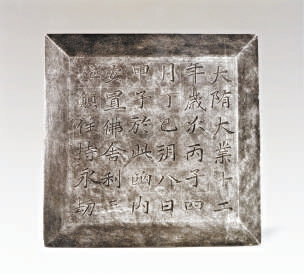 大隋大業十二
年歲次丙子四
月丁巳朔八日
甲子於此函內
安置佛舍利三
粒願住持永劫